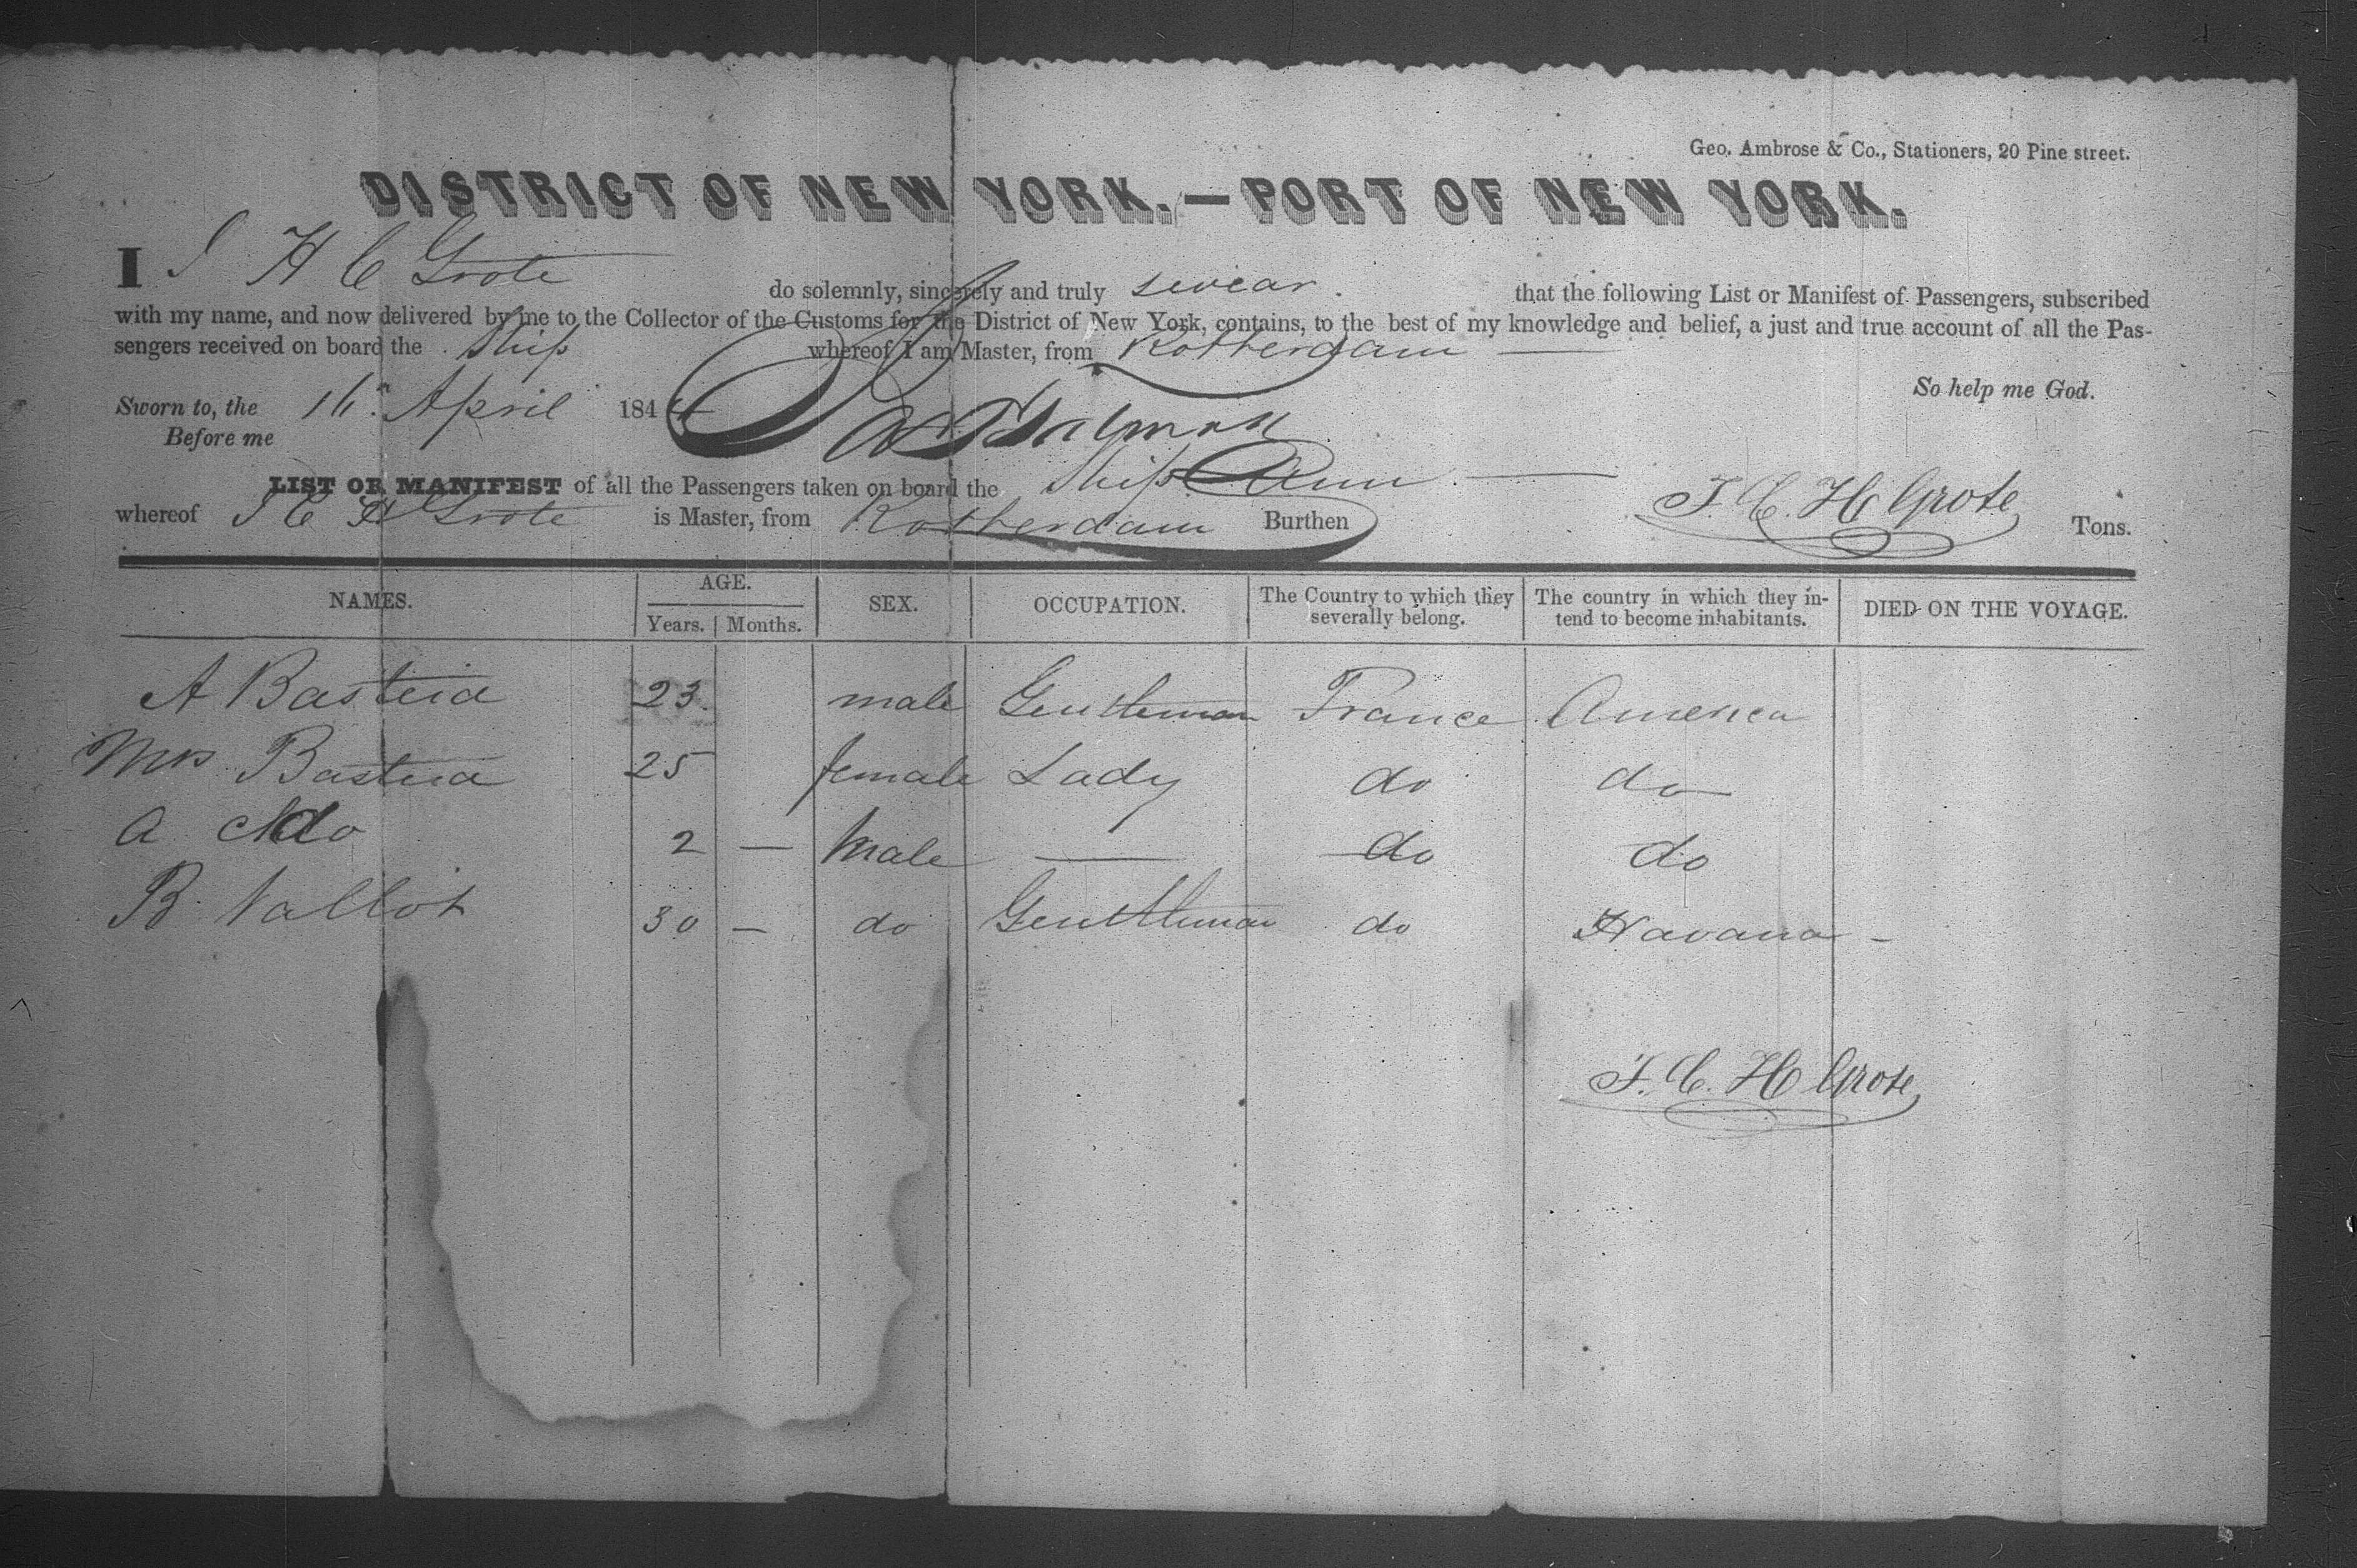 Geo. Ambrose & Co., Stationers, 20 Pine street.
DISTRICT OF NEW YORK.—PORT OF NEW YORK.
I J H C Grote do solemnly, sincerely and truly swear. that the following List or Manifest of Passengers, subscribed
with my name, and now delivered by me to the Collector of the Customs for the District of New York, contains, to the best of my knowledge and belief, a just and true account of all the Pas-
sengers received on board the Ship whereof I am Master, from Rotterdam —
So help me God.
Sworn to, the 16 April 1844
Before me
LIST OR MANIFEST of all the Passengers taken on board the Ship Ann — J. C. H Grote
whereof J C H Grote is Master, from Rotterdam Burthen Tons.
NAMES. AGE. Years. Months. SEX. OCCUPATION. The Country to which they severally belong. The country in which they intend to become inhabitants. DIED ON THE VOYAGE.
A Basteia 23. male Gentleman France America
Mrs Basteia 25 female Lady do do
A do 2 — Male — do do
B. Vallot 30 — do Gentleman do Havana —
J. C. H Grote